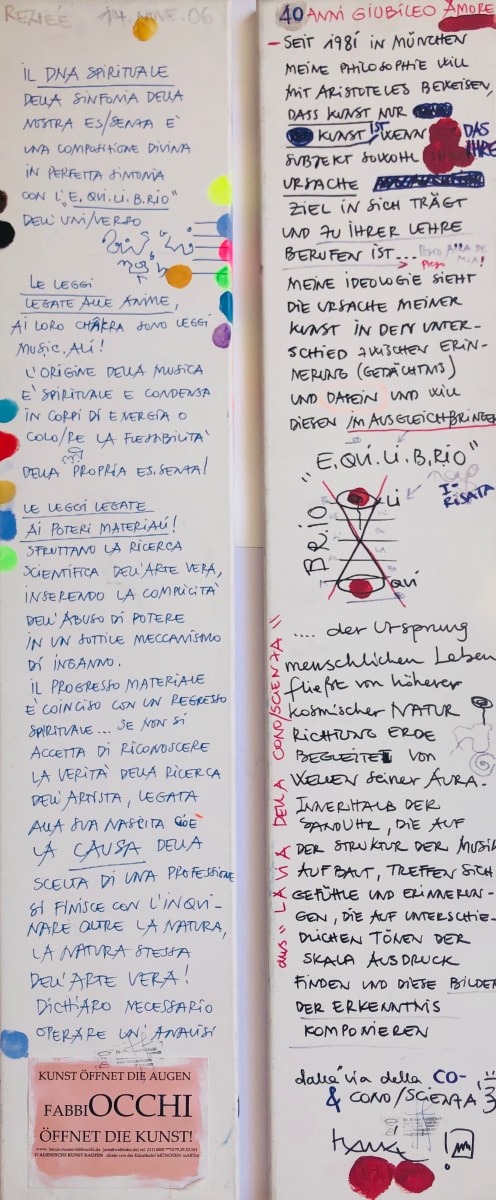 14. NOVE. 06
IL DNA SPIRITUALE
DELLA SINFONIA DELLA
NOSTRA ES/SENZA E'
UNA COMPOSITIONE DIVINA
IN PERFETTA SINTONIA
CON L'E.QUI.LI.B.RIO"
DELL'UNI/VERSO
LE LEGGI
LEGATE ALLE ANIME,
AI LORO CHAKRA SONO LEGGI
MUSIC.ALI!
L'ORIGINE DELLA MUSICA
E' SPIRITUALE E CONDENSA
IN CORPI DI ENERGIA O
COLO/RE LA FLESSIBILITA'
DELLA PROPRIA ES.SENZA!
LE LEGGI LEGATE
AI POTERI MATERIALI!
SFRUTTANO LA RICERCA
SCIENTIFICA DELL'ARTE VERA,
INSERENDO LA COMPLICITÀ
DELL'ABUSO DI POTERE
IN UN SOTTILE MECCANISMO
DI INGANNO.
IL PROGRESSO MATERIALE
E' COINCISO CON UN REGRESSO
SPIRITUALE... SE NON SI
ACCETTA DI RICONOSCERE
LA VERITÀ DELLA RICERCA
DELL'ARTISTA, LEGATA
ALLA SUA NASCITA CIOE
LA CAUSA DELLA
SCELTA DI UNA PROFESSIONE
SI FINISCE CON L'INQUI-
NARE OLTRE LA NATURA,
LA NATURA STESSA
DELL'ARTE VERA!
DICHIARO NECESSARIO
OPERARE UN'ANALISI
KUNST ÖFFNET DIE AUGEN
FABBIOCCHI
ÖFFNET DIE KUNST!
40 ANNI GIUBILEO AMORE
- SEIT 1981 IN MÜNCHEN
MEINE PHILOSOPHIE WILL
MIT ARISTOTELES BEWEISEN,
DASS KUNST NUR
KUNST IST, WENN DAS
SUBJEKT SOWOHL IHRE
URSACHE
ZIEL IN SICH TRÄGT
UND ZU IHRER LEHRE
BERUFEN IST...
MEINE IDEOLOGIE SIEHT
DIE URSACHE MEINER
KUNST IN DEM UNTER-
SCHIED ZWISCHEN ERIN-
NERUNG (GEDÄCHTNIS)
UND DASEIN UND WILL
DIESEN IM AUSGLEICH BRINGEN
"E.QUI.LI.B.RIO"
I-
RISATA
BR.IO
LI
QUI
.... der Ursprung
menschlichen Leben
fließt von höherer
kosmischer NATUR
RICHTUNG ERDE
BEGLEITET VON
WELLEN seiner AURA.
INNERHALB DER
SANDUHR, DIE AUF
DER STRUKTUR DER MUSIK
AUFBAUT, TREFFEN SICH
GEFÜHLE UND ERINNERUN-
GEN, DIE AUF UNTERSCHIE-
DLICHEN TÖNEN DER
SKALA AUSDRUCK
FINDEN UND DIESE BILDER
DER ERKENNTNIS
KOMPONIEREN
aus "LA VIA DELLA CONO/SCIENZA"
dalla via della CO-
& CONO/SCIENZA